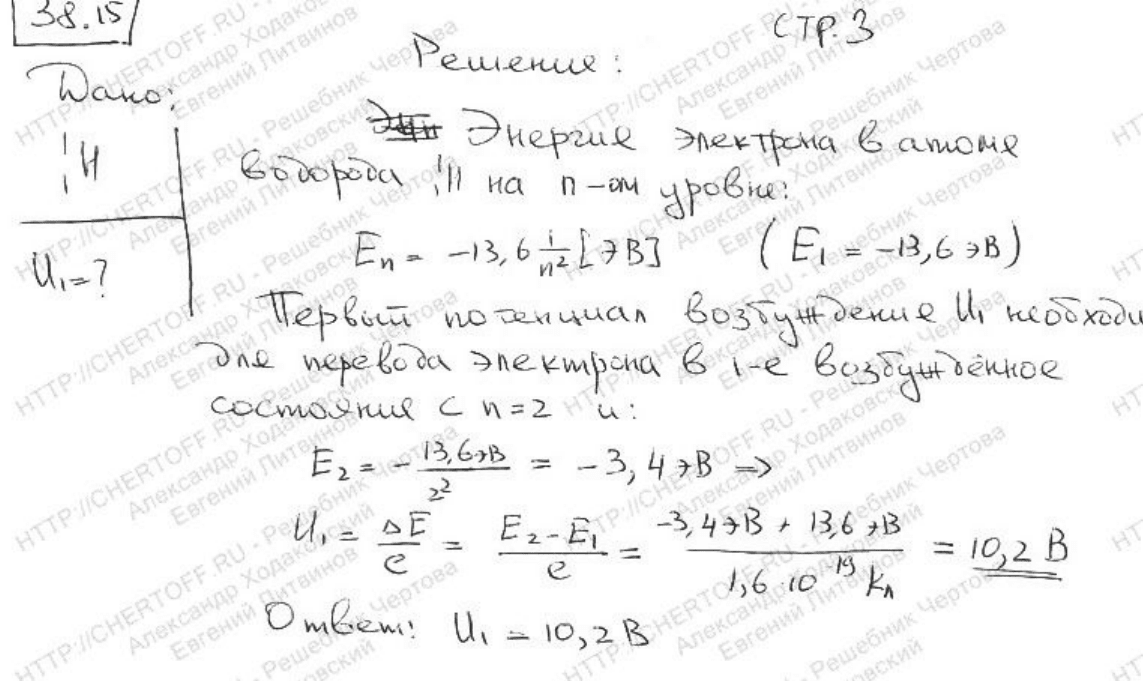 38.15
СТР.3
Дано:
Решение:
¹₁H
U₁=?
Энергия электрона в атоме
водорода ¹₁H на n-ом уровне:
Eₙ = -13,6 1/n² [эВ] (E₁ = -13,6 эВ)
Первый потенциал возбуждения U₁ необходи
для перевода электрона в 1-е возбуждённое
состояние с n=2 и:
E₂ = - 13,6эВ/2² = -3,4 эВ =>
U₁ = ΔE/e = E₂-E₁/e = -3,4эВ + 13,6 эВ/1,6·10⁻¹⁹ Кл = 10,2 В
Ответ: U₁ = 10,2 В
HTTP://CHERTOFF.RU - Решебник Чертова
Александр Ходаковский
Евгений Литвинов